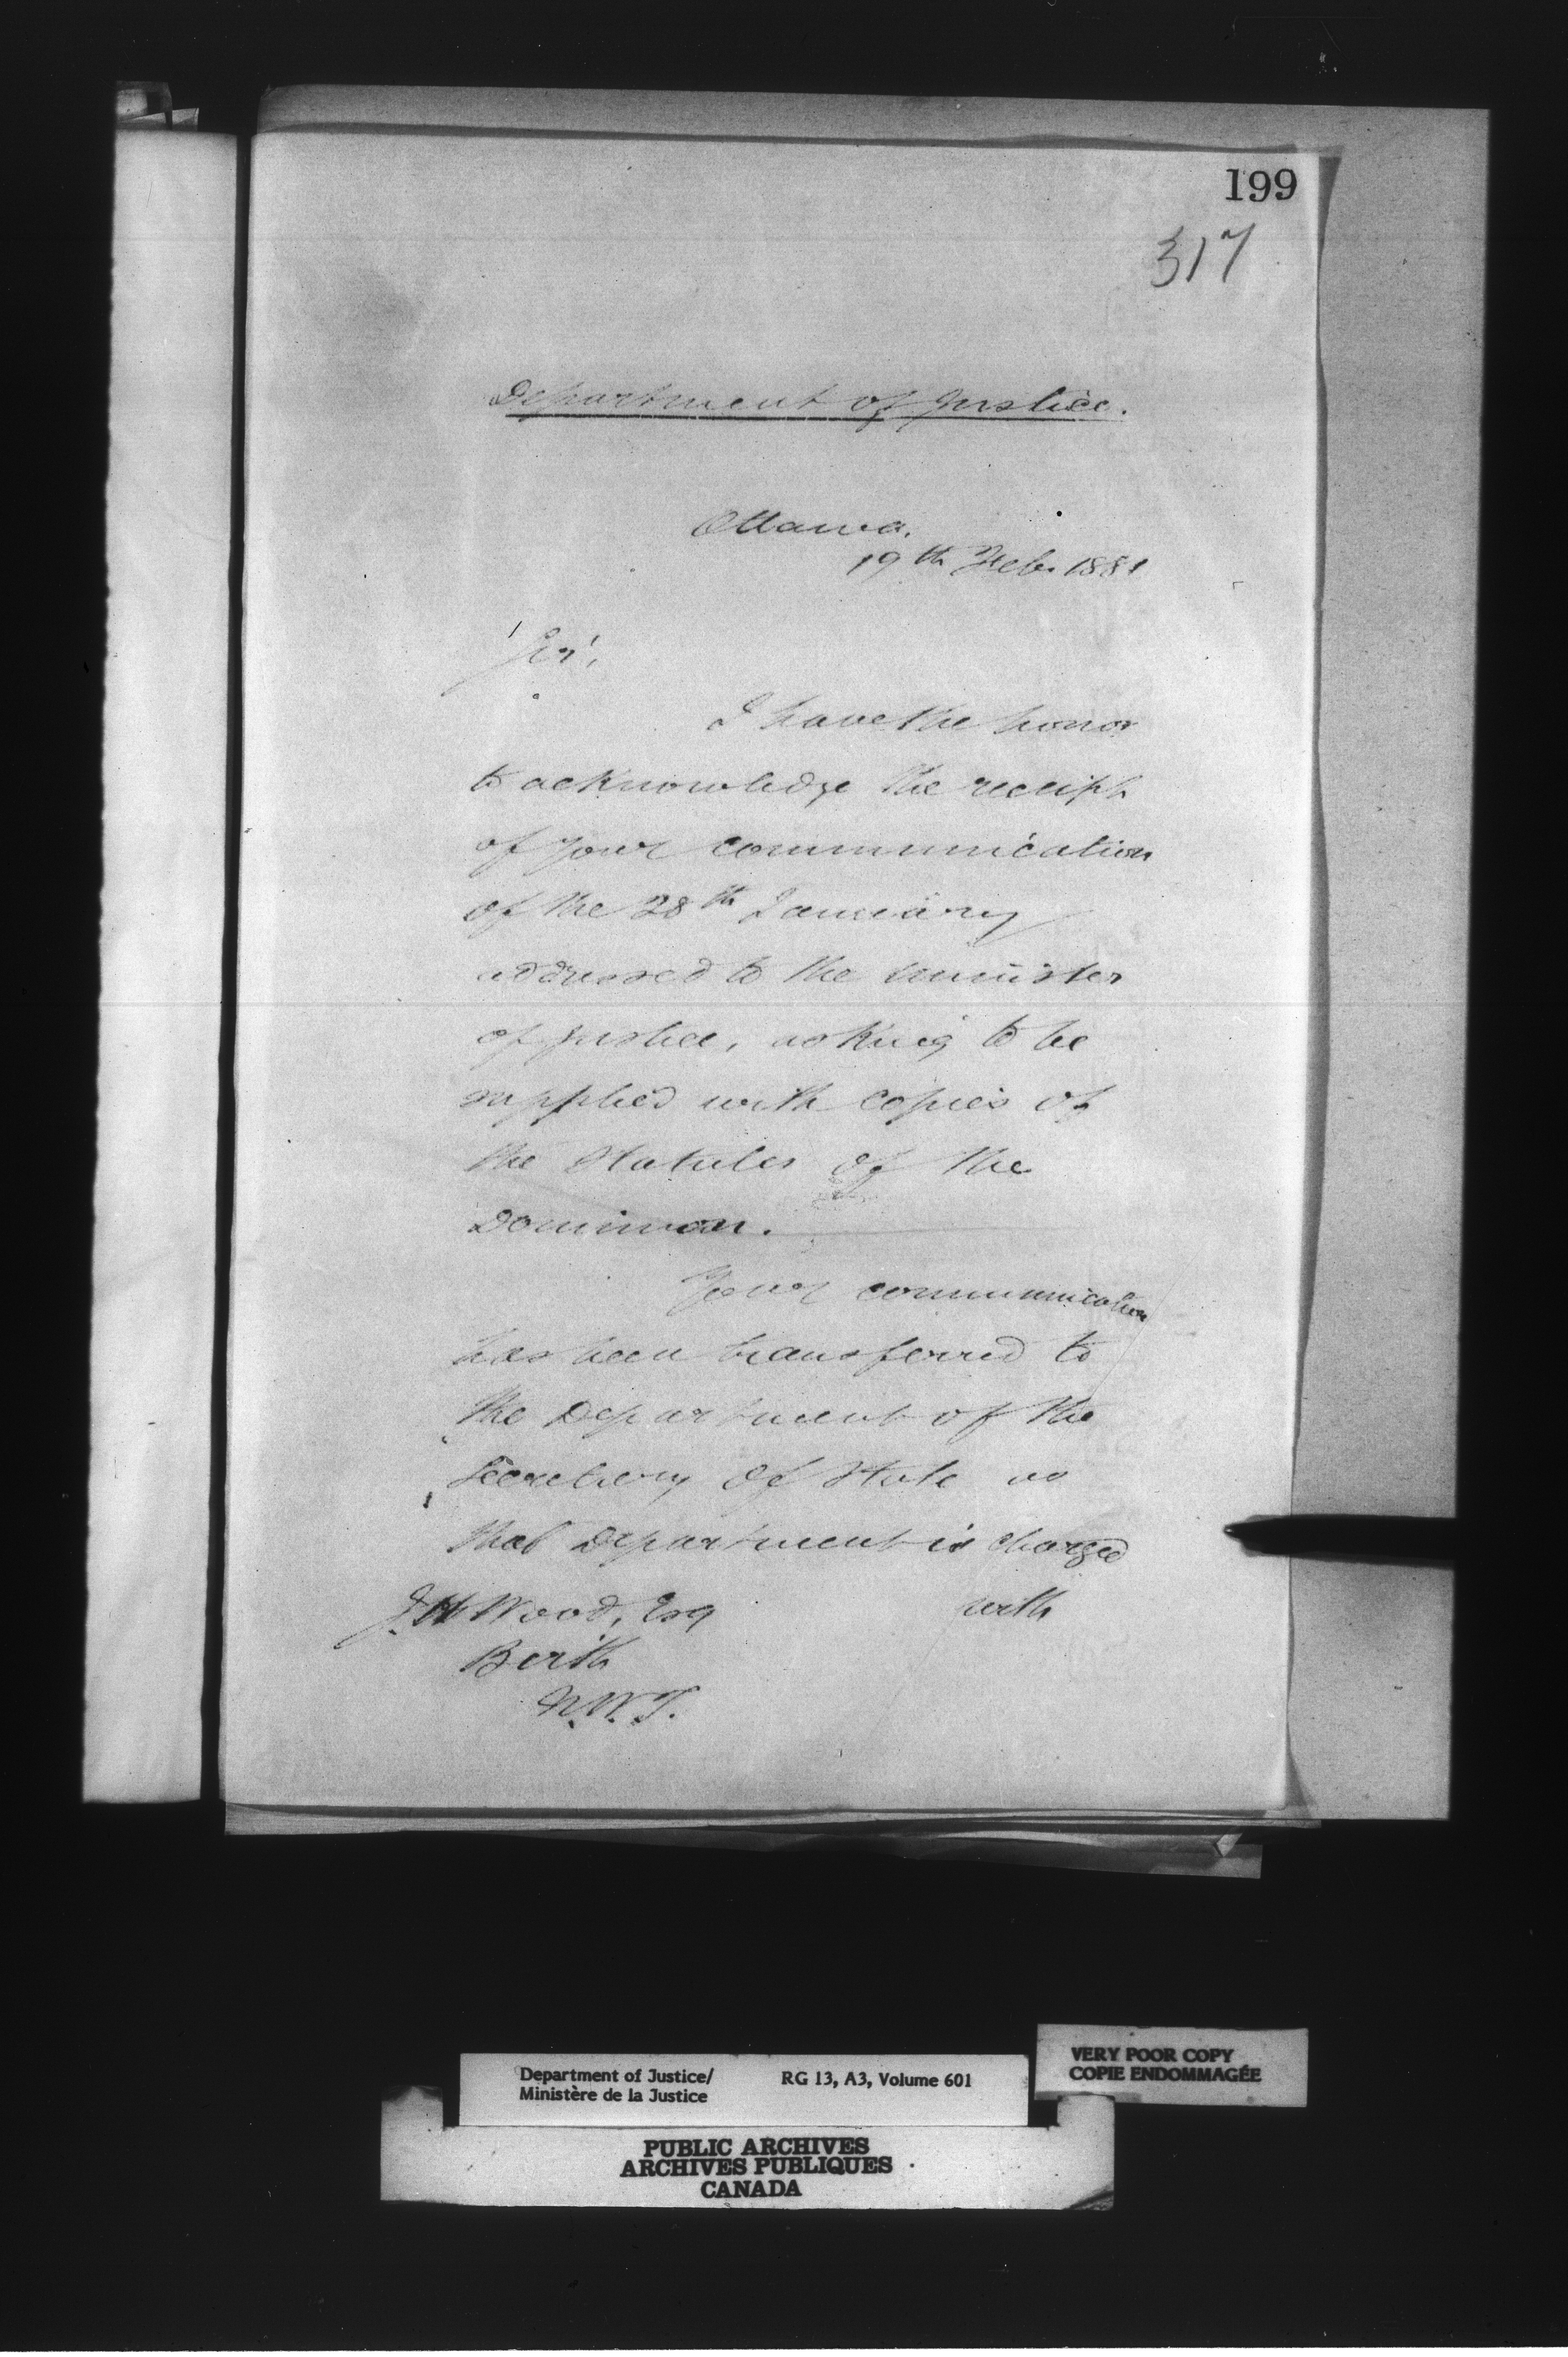 199
317
Department of Justice.
Ottawa.
19th Feb. 1881
Sir,
I have the honor
to acknowledge the receipt
of your communication
of the 28th January
addressed to the Minister
of Justice, asking to be
supplied with copies of
the Statutes of the
Dominion.
Your communication
has been transferred to
the Department of the
Secretary of State as
that Department is charged
with
J. H. Wood, Esq
Berth
N.W.T.
Department of Justice/
Ministère de la Justice
RG 13, A3, Volume 601
VERY POOR COPY
COPIE ENDOMMAGÉE
PUBLIC ARCHIVES
ARCHIVES PUBLIQUES
CANADA